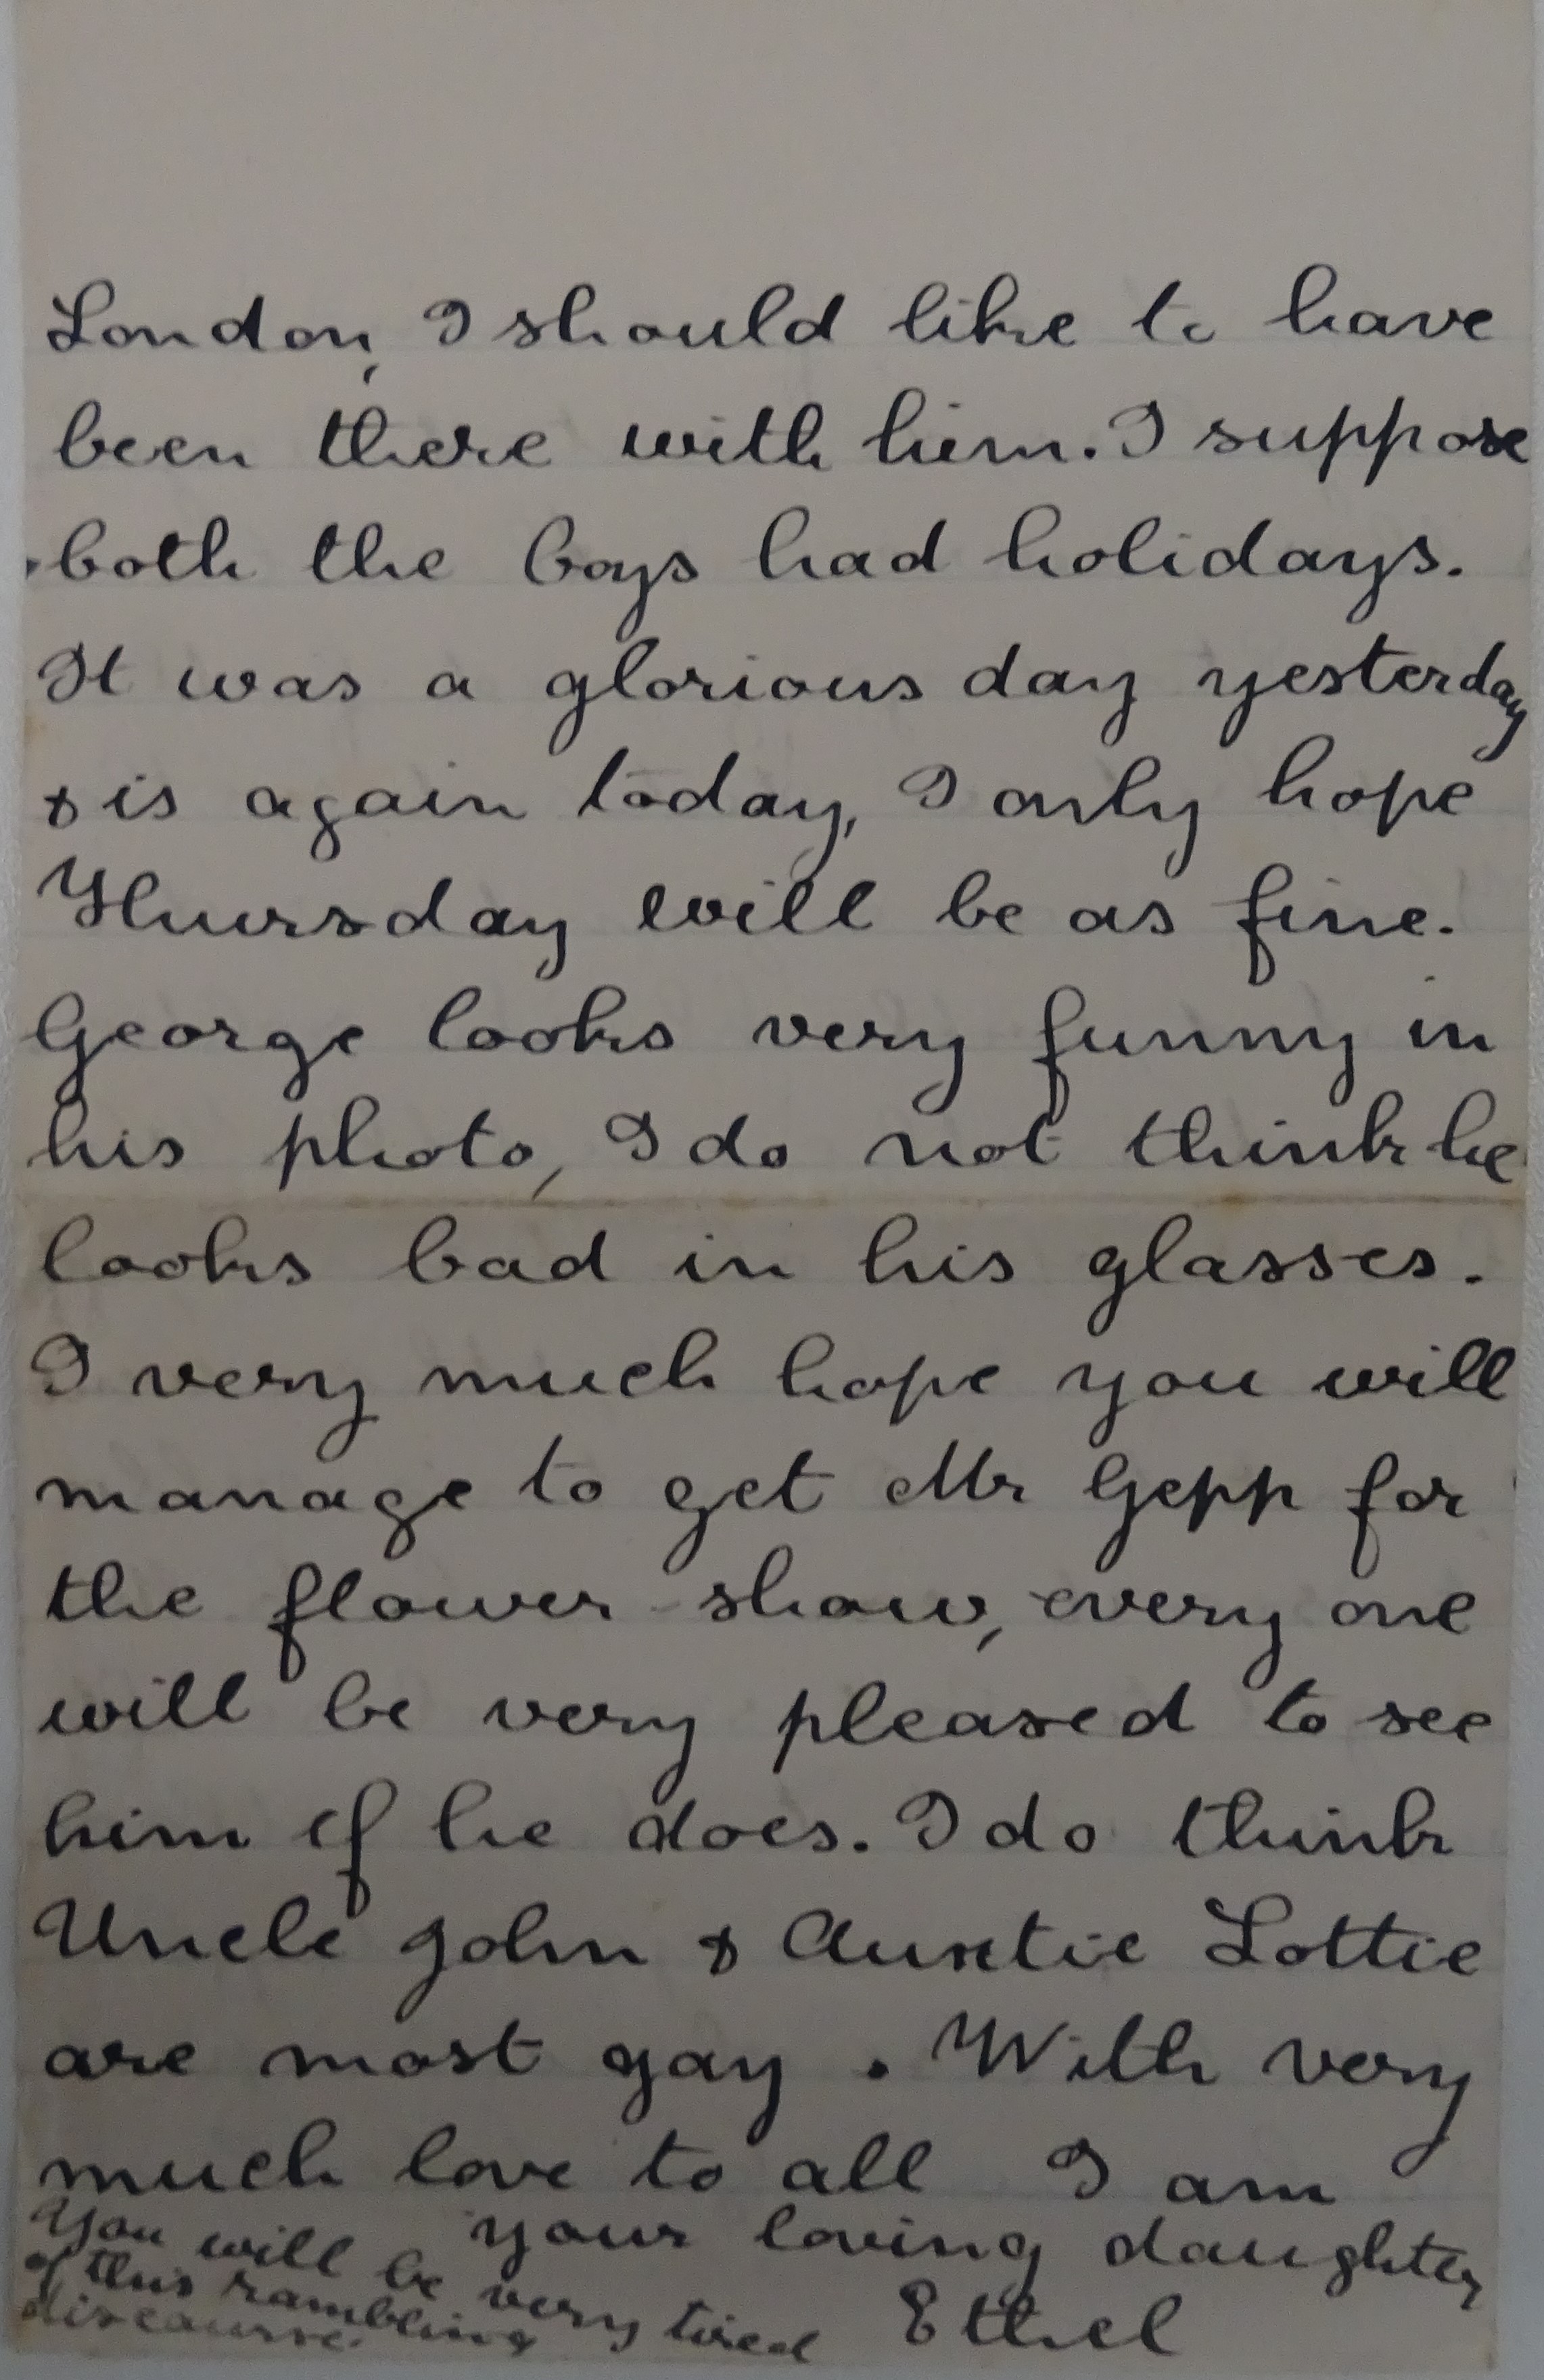 London, I should like to have
been there with him. I suppose
both the boys had holidays.
It was a glorious day yesterday
& is again today, I only hope
Thursday will be as fine.
George looks very funny in
his photo, I do not think he
looks bad in his glasses.
I very much hope you will
manage to get Mr Gepp for
the flower show, every one
will be very pleased to see
him if he does. I do think
Uncle John & Auntie Lottie
are most gay. With very
much love to all I am
your loving daughter
Ethel
You will be very tired
of this rambling
discourse.